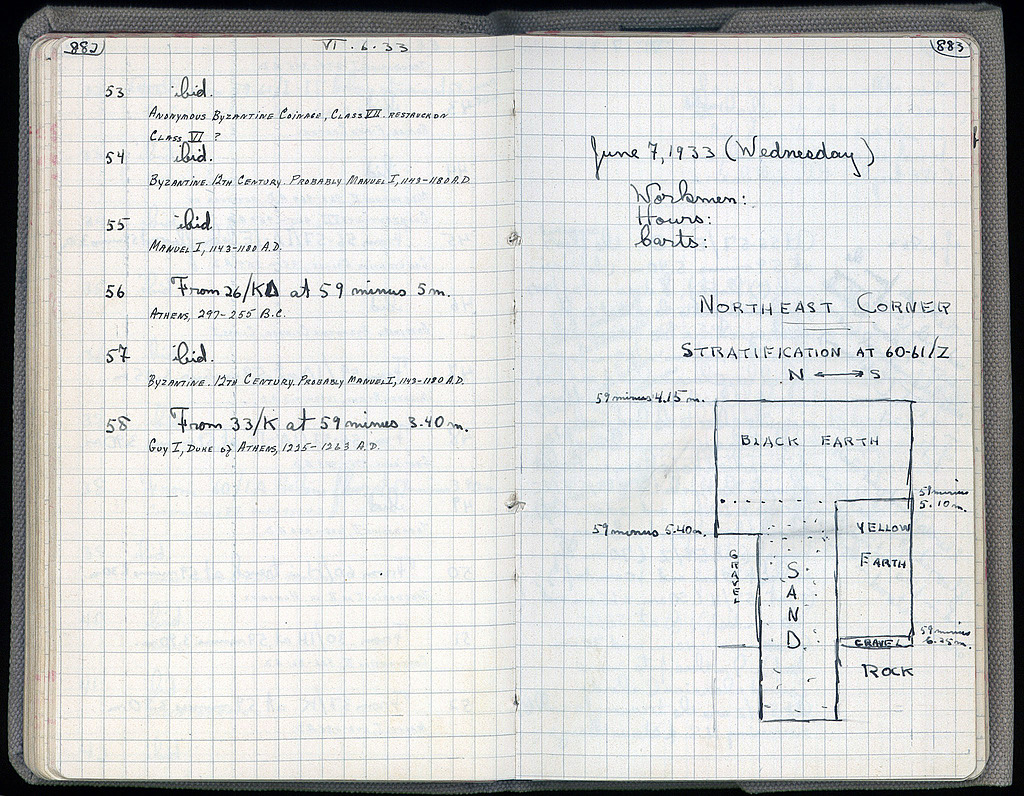 882
VI. 6. 33
53 ibid.
ANONYMOUS BYZANTINE COINAGE, CLASS VII RESTRUCK ON
CLASS VI ?
54 ibid.
BYZANTINE. 12TH CENTURY. PROBABLY MANUEL I, 1143-1180 A.D.
55 ibid
MANUEL I, 1143-1180 A.D.
56 From 26/KΔ at 59 minus 5m.
ATHENS, 297-255 B.C.
57 ibid.
BYZANTINE. 12TH CENTURY. PROBABLY MANUEL I, 1143-1180 A.D.
58 From 33/K at 59 minus 3.40 m.
GUY I, DUKE of ATHENS, 1225-1263 A.D.
883
June 7, 1933 (Wednesday)
Workmen:
Hours:
Carts:
NORTHEAST CORNER
STRATIFICATION AT 60-61/Z
N ⟷ S
59 minus 4.15 m.
BLACK EARTH
59 minus
5.10 m.
59 minus 5.40 m.
YELLOW
EARTH
GRAVEL
SAND
59 minus
6.25 m.
GRAVEL
ROCK